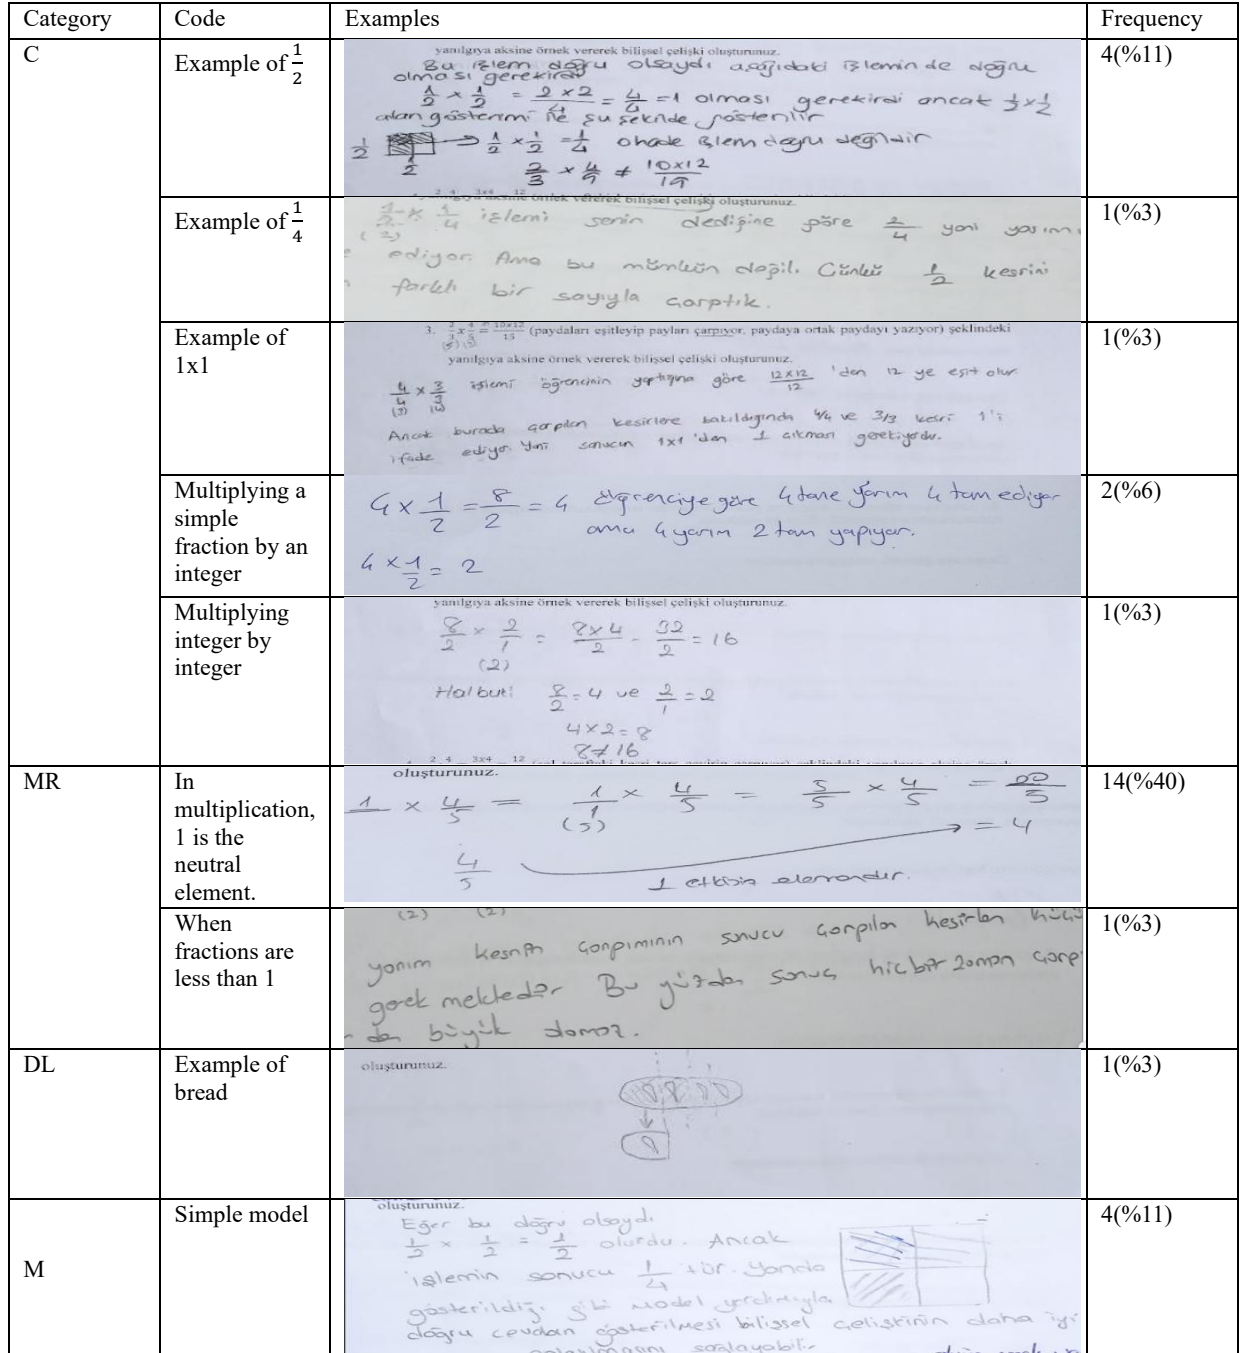 Category Code Examples Frequency
C Example of 1/2 4(%11)
yanılgıya aksine örnek vererek bilişsel çelişki oluşturunuz.
Bu işlem doğru olsaydı aşağıdaki işleminde doğru
olması gerekirdi
1/2 × 1/2 = 2×2/4 = 4/4 = 1 olması gerekirdi ancak 1/2 × 1/2
alan gösterimi ile şu şekilde gösterilir
1/2 → 1/2 × 1/2 = 1/4 o halde işlem doğru değildir
1/2
2/3 × 4/9 ≠ 10×12/
Example of 1/4 1(%3)
yanılgıya aksine örnek vererek bilişsel çelişki oluşturunuz.
1/4 işlemi senin dediğine göre 2/4 yani yarım
(2)
ediyor. Ama bu mümkün değil. Çünkü 1/2 kesrini
farklı bir sayıyla çarptık.
Example of 1x1 1(%3)
3. (paydaları eşitleyip payları çarpıyor, paydaya ortak paydayı yazıyor) şeklindeki
yanılgıya aksine örnek vererek bilişsel çelişki oluşturunuz.
4/4 × 3/3 işlemi öğrencinin yaptığına göre 12×12/12 'den 12 ye eşit olur
(3) (4)
Ancak burada çarpılan kesirlere bakıldığında 4/4 ve 3/3 kesri 1'i
ifade ediyor. Yani sonucun 1x1 'den 1 çıkması gerekiyordu.
Multiplying a simple fraction by an integer 2(%6)
4 × 1/2 = 8/2 = 4 öğrenciye göre 4 tane yarım 4 tam ediyor
ama 4 yarım 2 tam yapıyor.
4 × 1/2 = 2
Multiplying integer by integer 1(%3)
yanılgıya aksine örnek vererek bilişsel çelişki oluşturunuz.
8/2 × 2/1 = 8×4/2 = 32/2 = 16
(2)
Halbuki 8/2 = 4 ve 2/1 = 2
4×2=8
8≠16
MR In multiplication, 1 is the neutral element. 14(%40)
oluşturunuz.
1 × 4/5 = 1/1 × 4/5 = 5/5 × 4/5 = 20/5
(5)
= 4
4/5
1 etkisiz elemandır.
When fractions are less than 1 1(%3)
(2) (2)
yarım kesrin çarpımının sonucu çarpılan
gerekmektedir Bu yüzden sonuç hiçbir zaman
büyük olamaz.
DL Example of bread 1(%3)
oluşturunuz.
M Simple model 4(%11)
oluşturunuz.
Eğer bu doğru olsaydı
1/2 × 1/2 = 1/2 olurdu. Ancak
işlemin sonucu 1/4 tür. Yanda
gösterildiği gibi model yardımıyla
doğru cevabın gösterilmesi bilişsel çelişkinin daha iyi